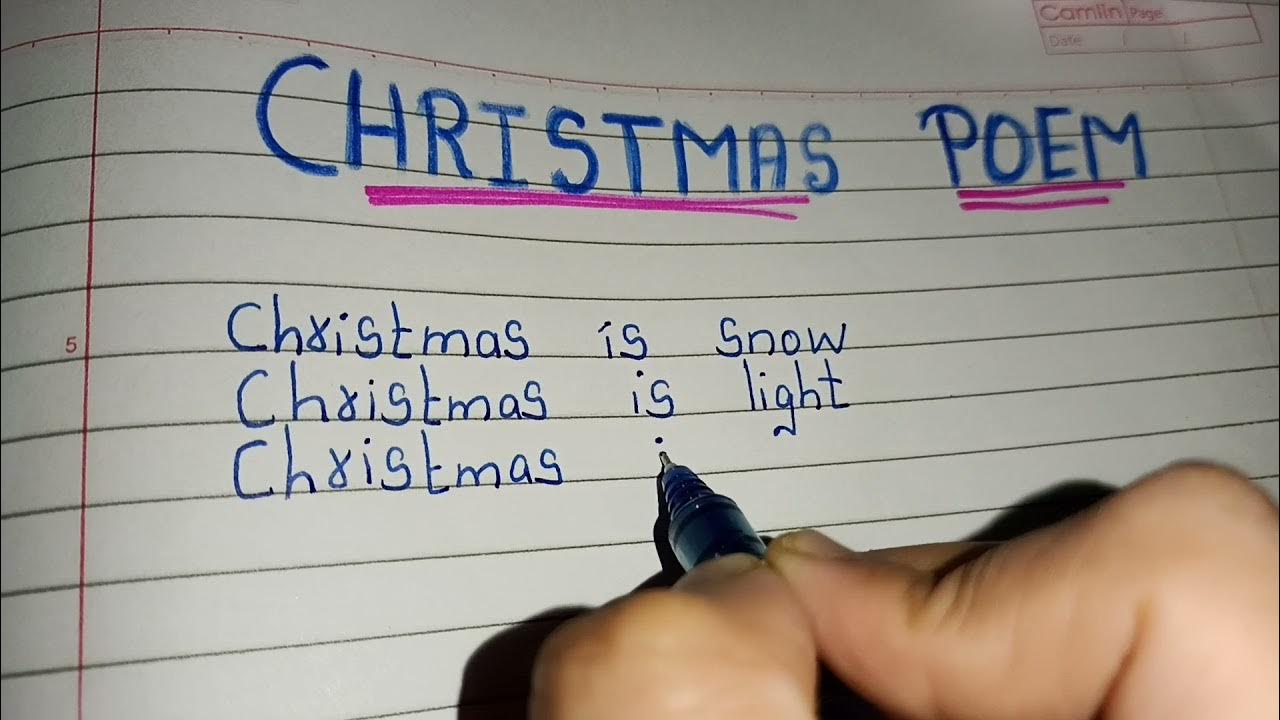 Camlin Page
Date / /
CHRISTMAS POEM
5
Christmas is snow
Christmas is light
Christmas i